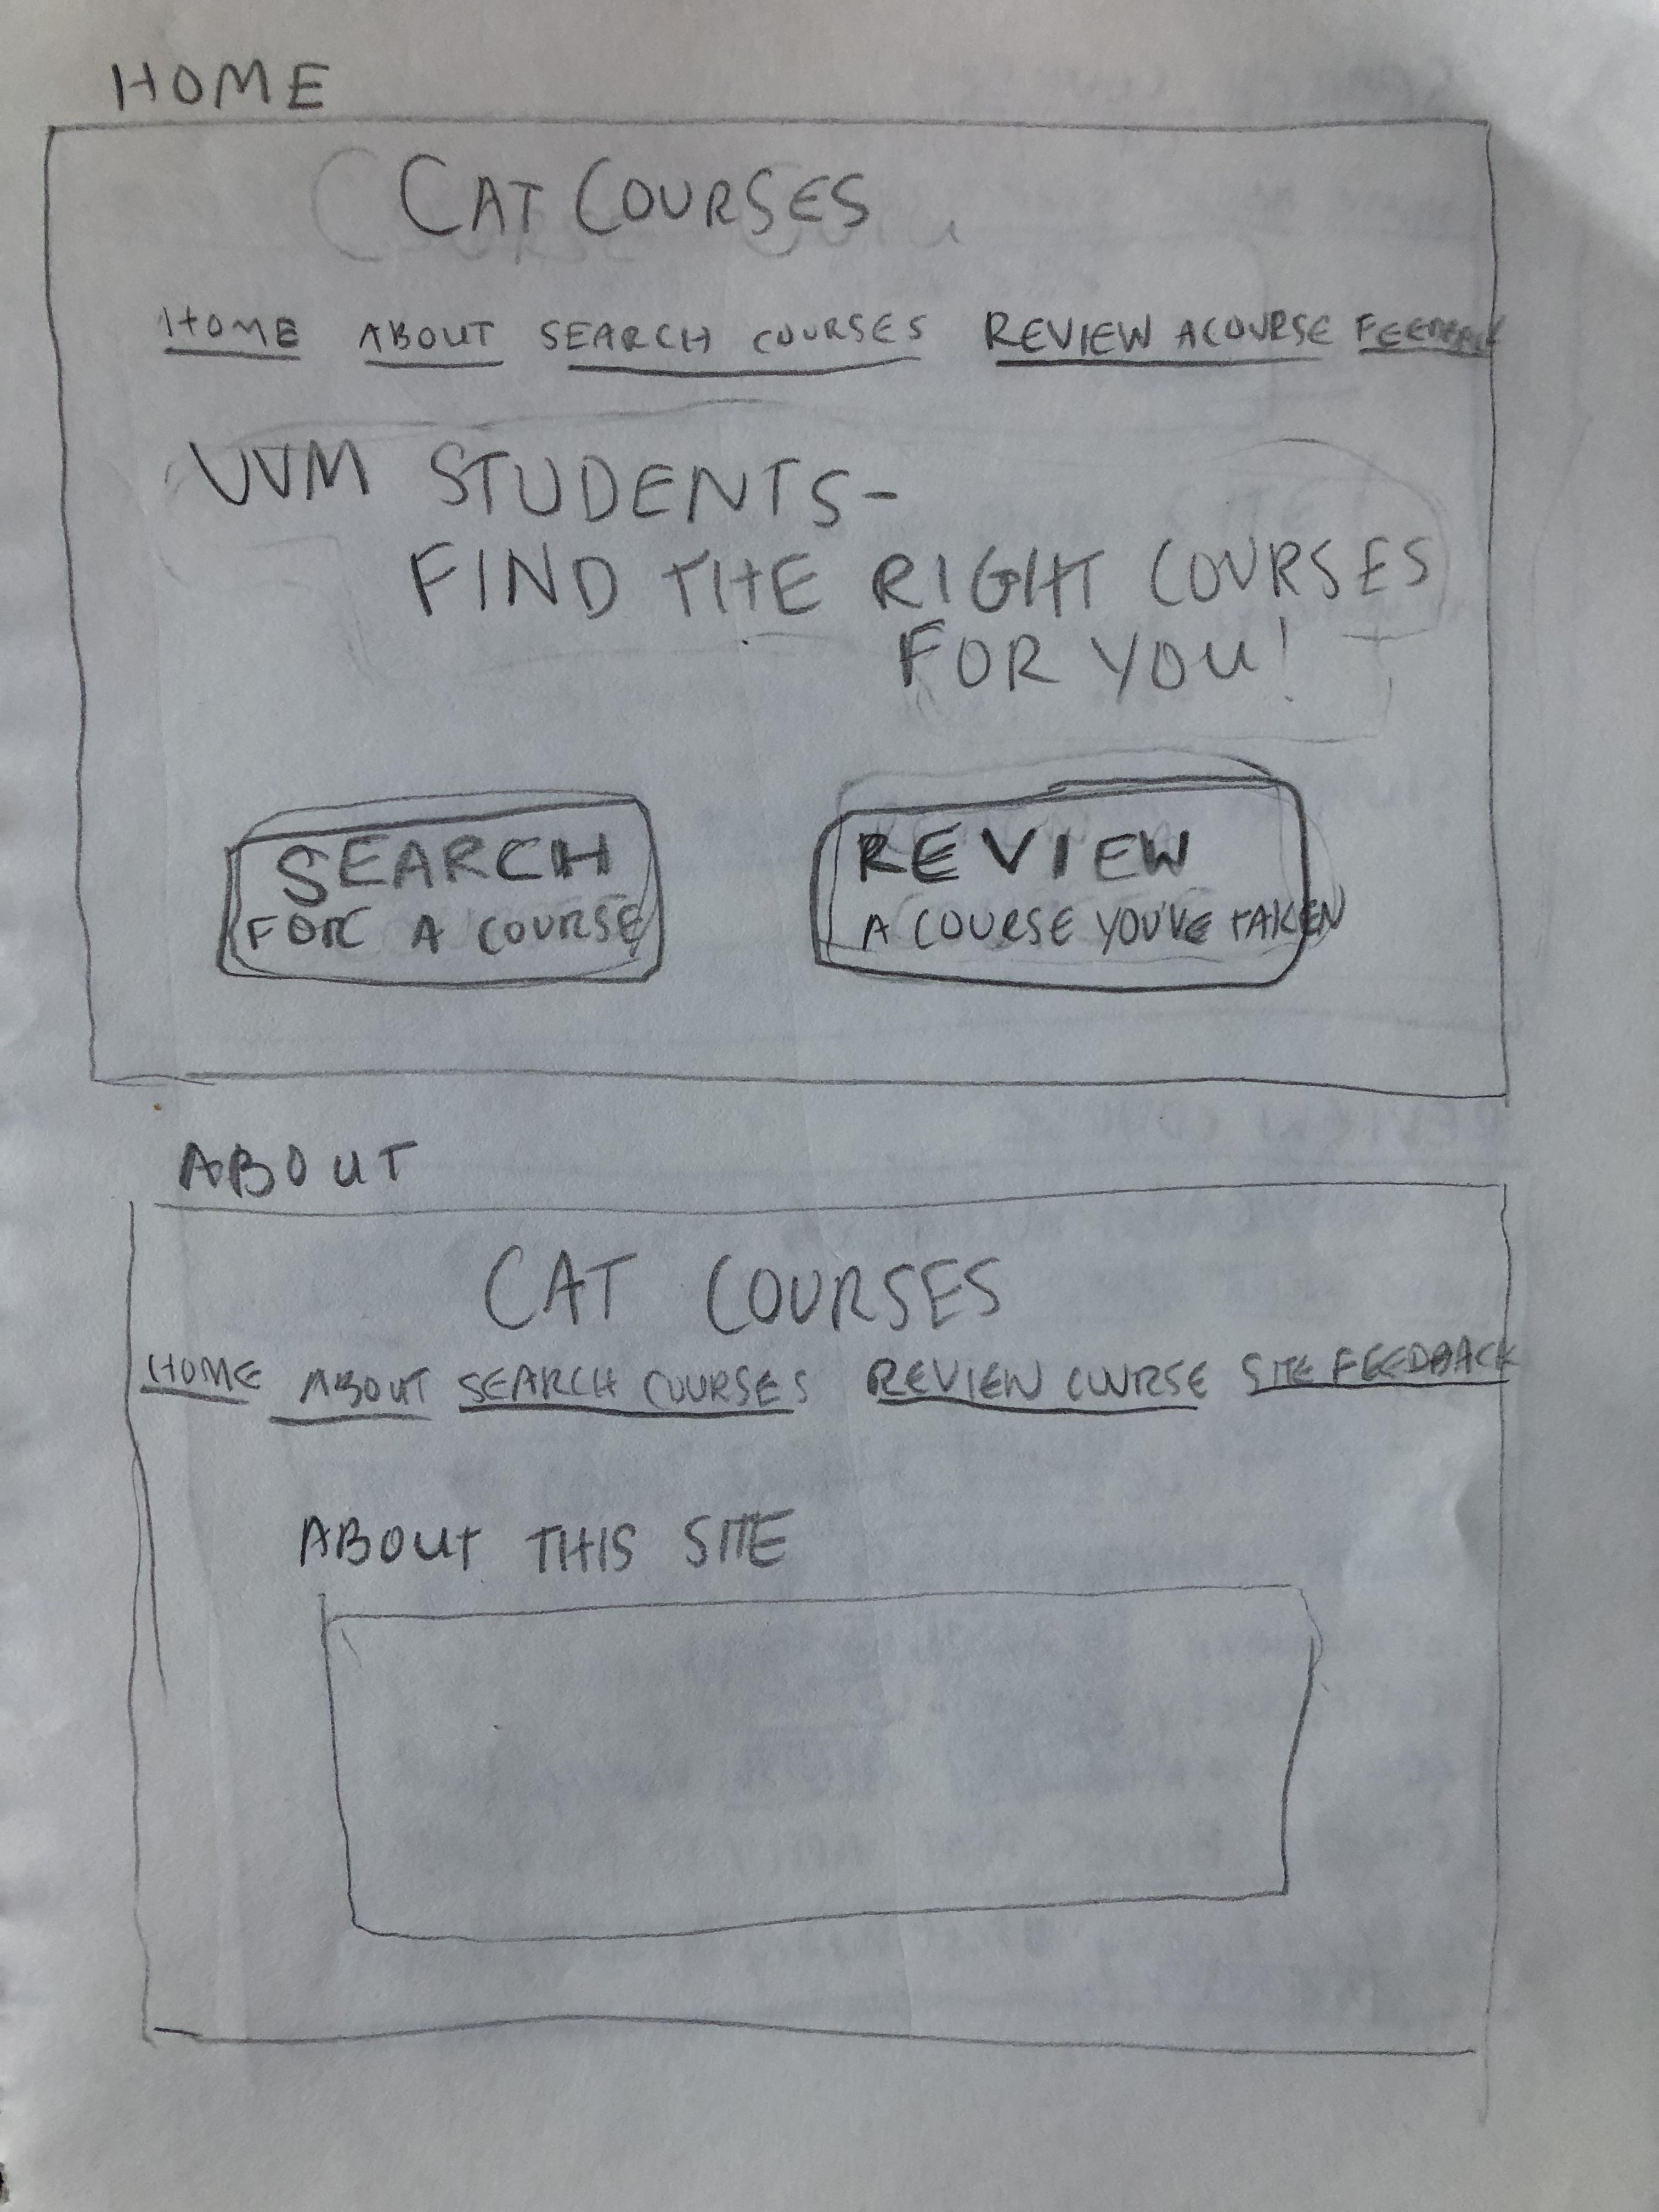 HOME
CAT COURSES
HOME ABOUT SEARCH COURSES REVIEW A COURSE FEEDBACK
UVM STUDENTS-
FIND THE RIGHT COURSES
FOR YOU!
SEARCH
FOR A COURSE
REVIEW
A COURSE YOU'VE TAKEN
ABOUT
CAT COURSES
HOME ABOUT SEARCH COURSES REVIEW COURSE SITE FEEDBACK
ABOUT THIS SITE